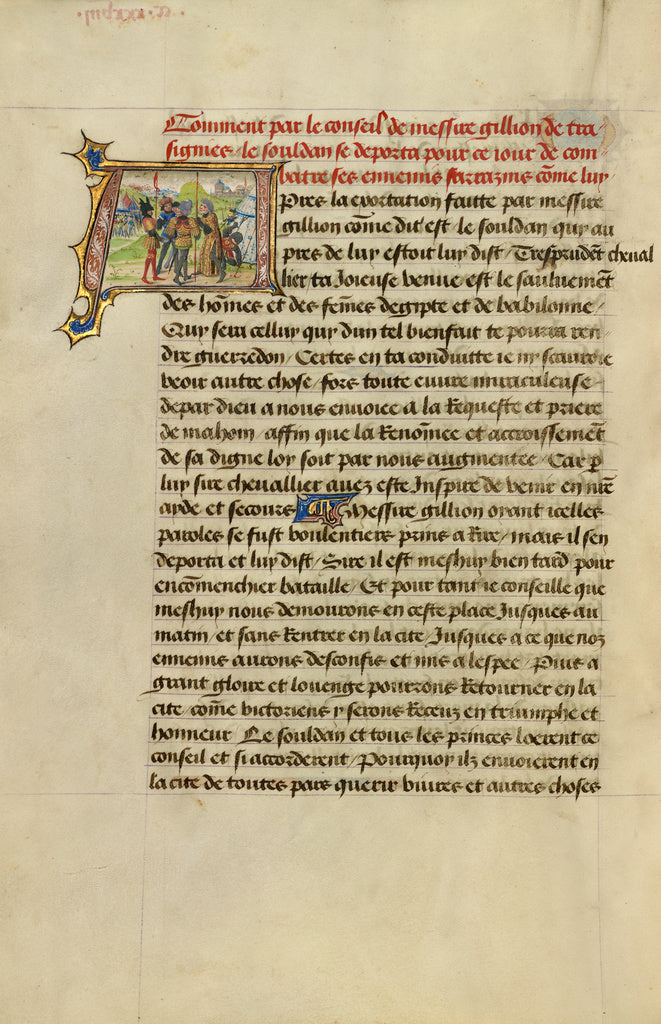 Comment par le conseil de messire gillion de tra/
signies / le souldan se deporta pour ce iour de com/
batre ses ennemis sarrazins cõme luy
Pres la exortation faitte par messire
gillion cõme dit est / le souldan quy au
pres de luy estoit luy dist / Tresprudẽt cheual
lier ta Joieuse venue est le sauluemẽt
des hõmes et des fẽmes degipte et de babilonne /
Quy sera celluy quy dun tel bienfait te pourra ren/
dre guerredon / Certes en ta conduitte ie ny scauroie
veoir autre chose / fors toute euure miraculeuse
depar dieu a nous enuoiee a la Requeste et priere
de mahom / affin que la Renõmee et accroissemẽt
de sa digne loy soit par nous augmentee / Car p̱
luy sire cheuallier auez este Inspire de venir en nr̃e
ayde et secours Messire gillion oyant icelles
paroles se fust voulentiers prins a Rire / mais il sen
deporta et luy dist / Sire il est meshuy bien tard pour
encõmenchier bataille / Et pour tant ie conseille que
meshuy nous demourons en ceste place Jusques au
matin / et sans Rentrer en la cite / Jusques a ce que noz
ennemis aurons desconfis et mis a lespee / Puis a
grant gloire et louenge pourrons Retourner en la
cite / cõme victoriens y serons Receuz en triumphe et
honneur Le souldan et tous les princes loerent ce
conseil et si accorderent / Pourquoy ilz enuoierent en
la cite de toutes pars querir viures et autres choses